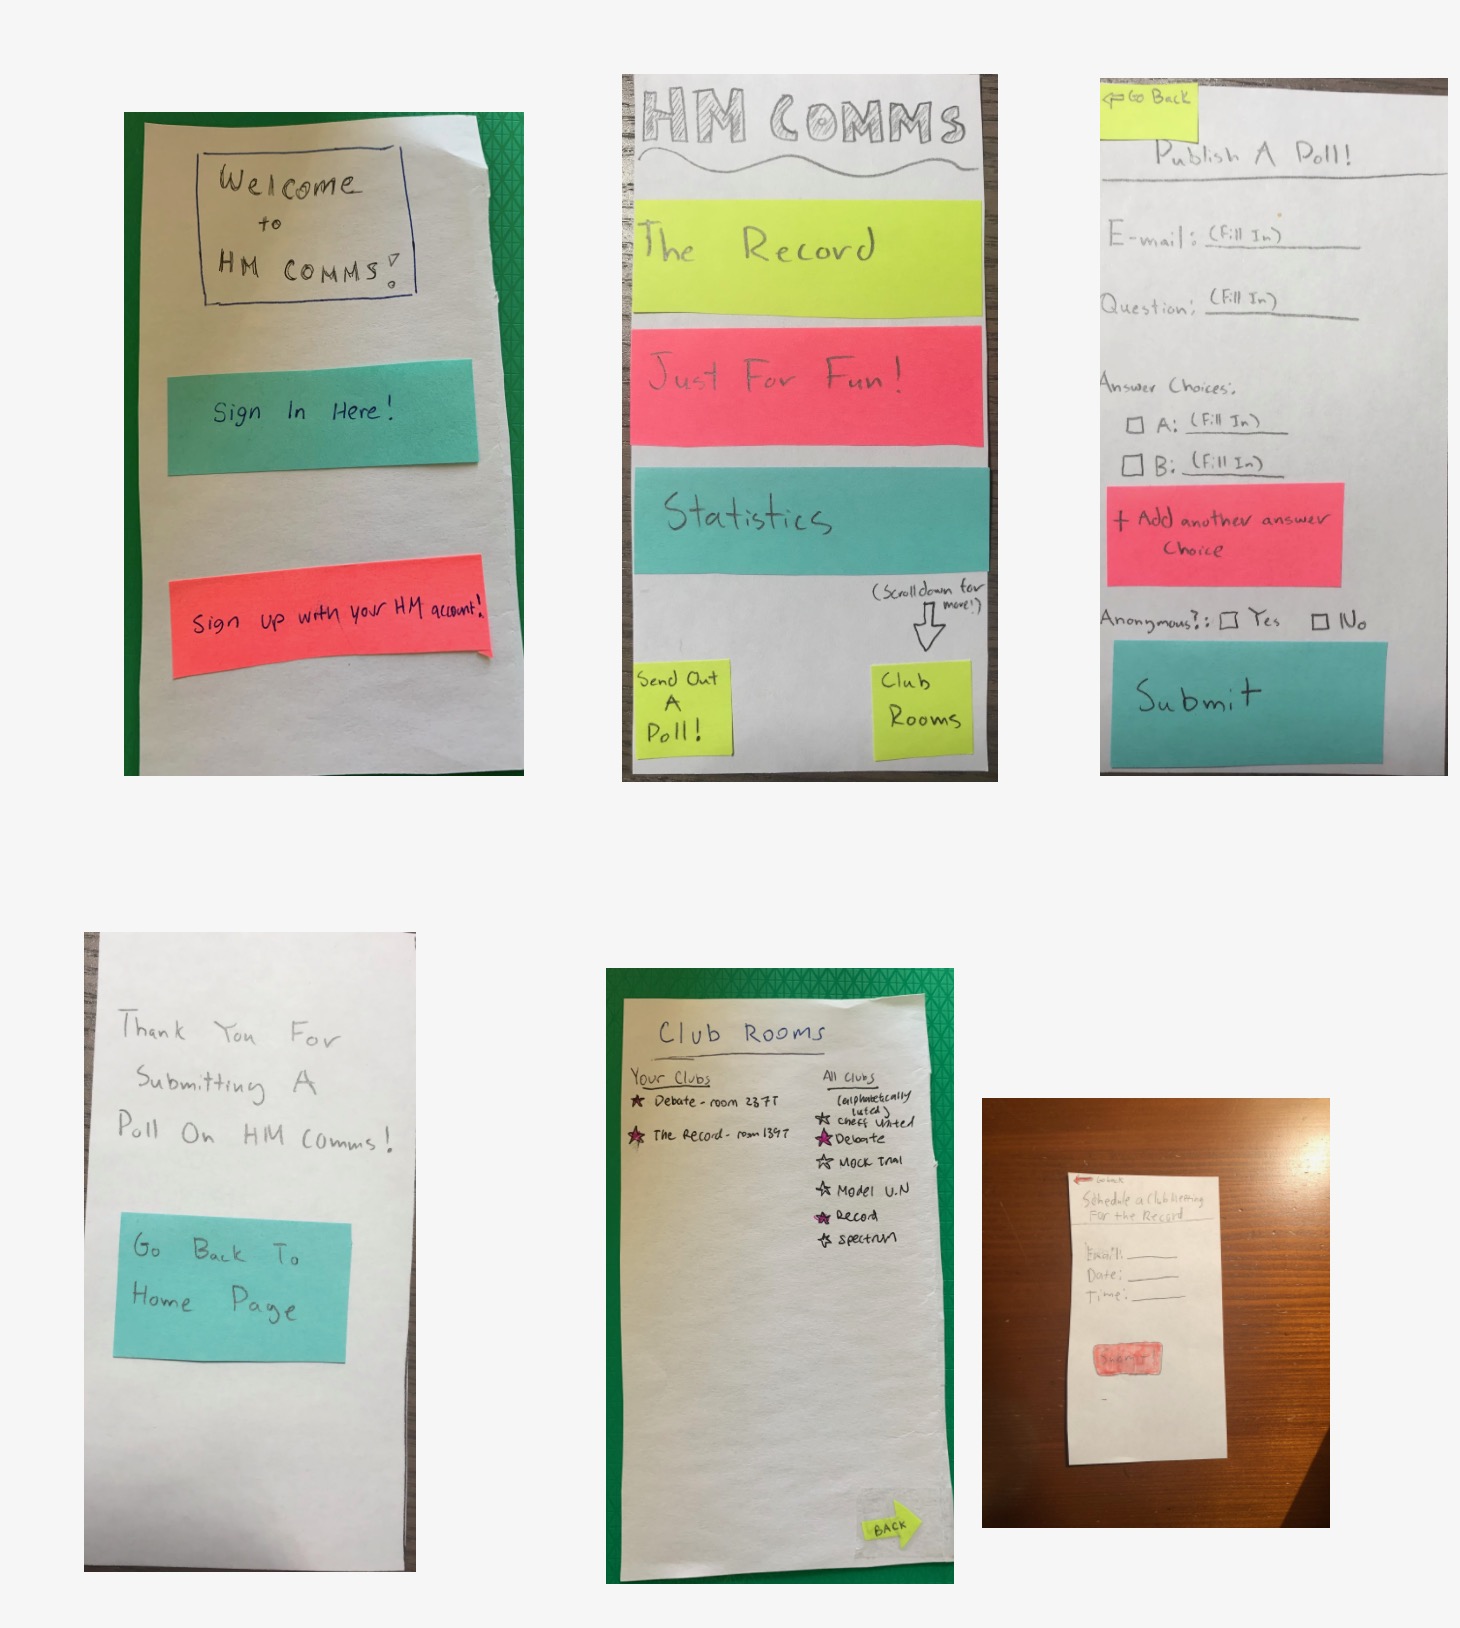 Welcome
to
HM COMMS!
Sign In Here!
Sign up with your HM account!
HM COMMS
The Record
Just For Fun!
Statistics
(Scroll down for
more!)
Send Out
A
Poll!
Club
Rooms
Go Back
Publish A Poll!
E-mail: (Fill In)
Question: (Fill In)
Answer Choices:
A: (Fill In)
B: (Fill In)
+ Add another answer
choice
Anonymous?: Yes No
Submit
Thank You For
Submitting A
Poll On HM Comms!
Go Back To
Home Page
Club Rooms
Your Clubs
Debate - room 237T
The Record - room 139T
All Clubs
(alphabetically
listed)
Chess United
Debate
Mock Trial
Model U.N
Record
Spectrum
BACK
Go back
Schedule a Club Meeting
For the Record
Email:
Date:
Time:
Submit